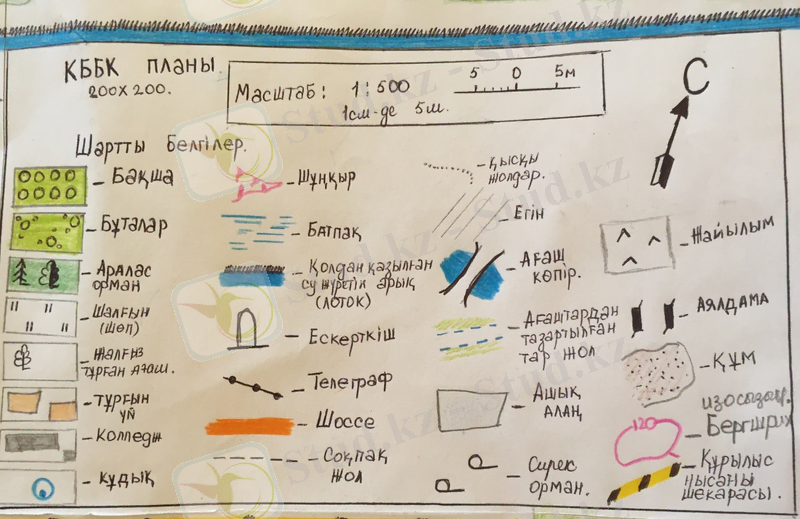 КББК планы
200х200.
Масштаб: 1:500
1см-де 5м.
5 0 5м
С
Шартты Белгілер.
- Бақша
- Бұталар
- Аралас
орман
- Шалғын
(шөп)
- Жалғыз
тұрған ағаш.
- тұрғын
үй
- Колледж
- құдық
- Шұңқыр
- Батпақ
- Қолдан қазылған
су жүретін арық
(лоток)
- Ескерткіш
- Телеграф
- Шоссе
- Соқпақ
жол
- қысқы
жолдар.
- Егін
- Ағаш
көпір.
- Ағаштардан
тазартылған
тар жол
- Ашық
алаң
- Сирек
орман.
- Жайылым
- Аялдама
- Құм
120
- Бергштрих
- Құрылыс
нысаны
шекарасы.
Stud.kz - Stud.kz
Stud.kz - Stud.kz
Stud.kz - Stud.kz